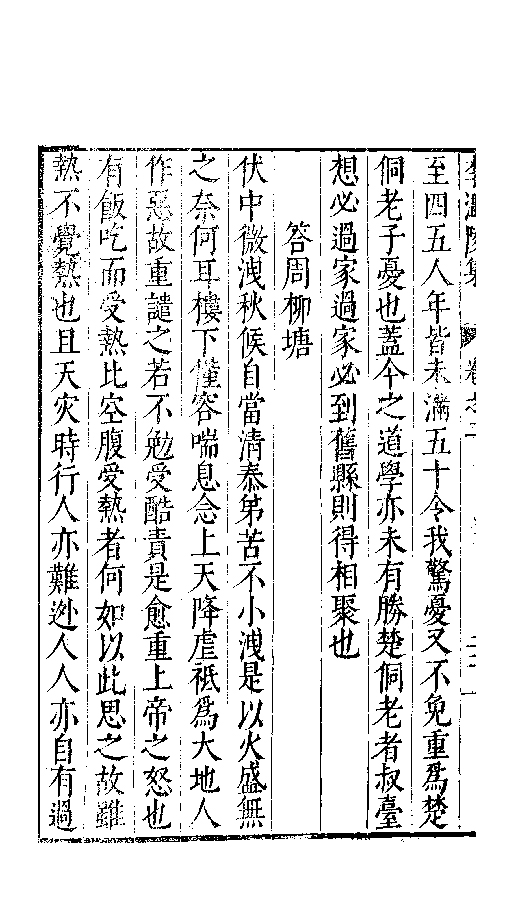 李溫陵集 卷之二
至四五人年皆未滿五十令我驚憂又不免重爲楚
侗老子憂也蓋今之道學亦未有勝楚侗老者叔臺
想必過家過家必到舊縣則得相聚也
答周柳塘
伏中微洩秋候自當清泰弟苦不小洩是以火盛無
之奈何耳樓下僅容喘息念上天降虐祗爲大地人
作惡故重譴之若不勉受酷責是愈重上帝之怒也
有飯吃而受熱比空腹受熱者何如以此思之故雖
熱不覺熱也且天灾時行人亦難逃人人亦自有過